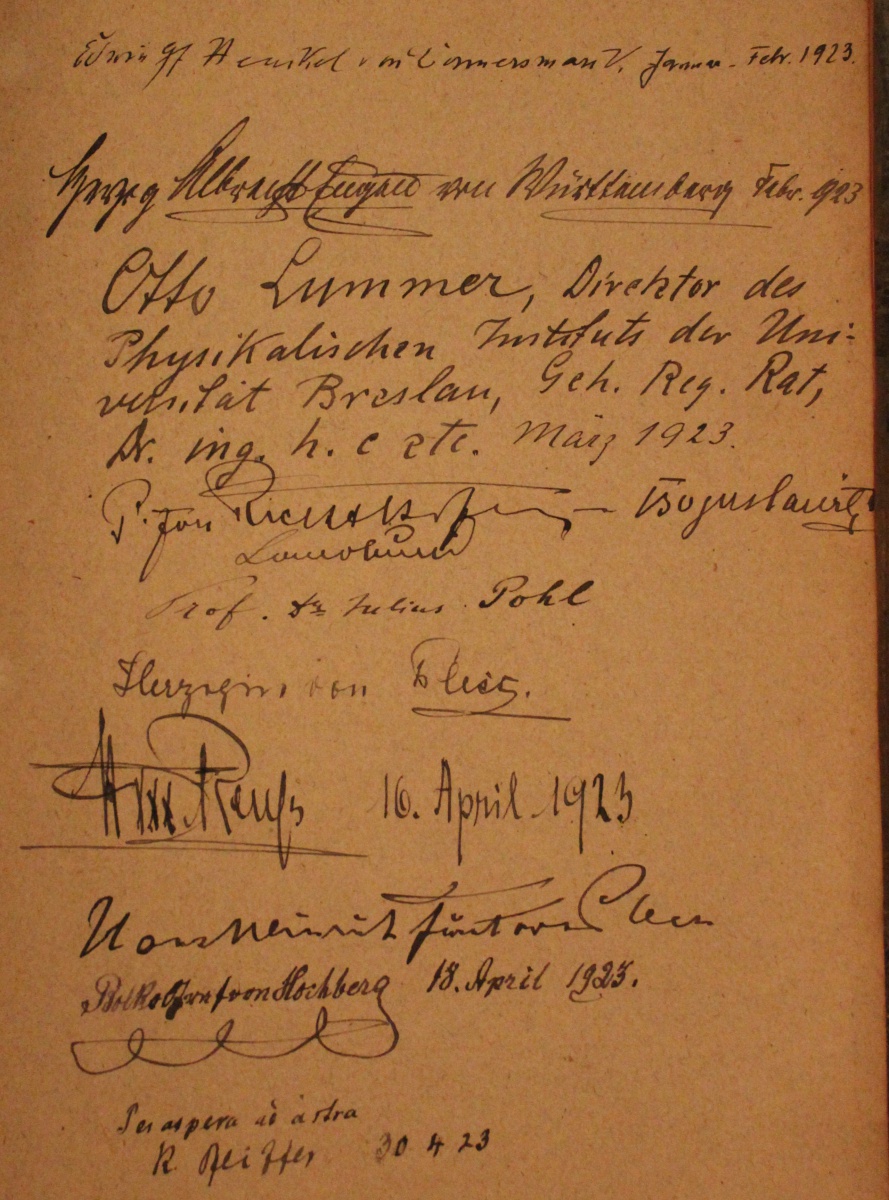 Edwin Gf Henckel von Donnersmarck, Januar - Febr. 1923.
Georg Albrecht Eugen von Württemberg Febr. 923
Otto Lummer, Direktor des
Physikalischen Instituts der Uni-
versität Breslau, Geh. Reg. Rat,
Dr. ing. h. c etc. März 1923.
P. von Richthofen — Boguslawitz
Prof. Dr Julius Pohl
Herzogin von Pless.
Reuß 16. April 1923
Hans Heinrich Fürst von Pless
Bolko Graf von Hochberg 18. April 1923.
Per aspera ad astra
R. Pfeiffer 30 4 23